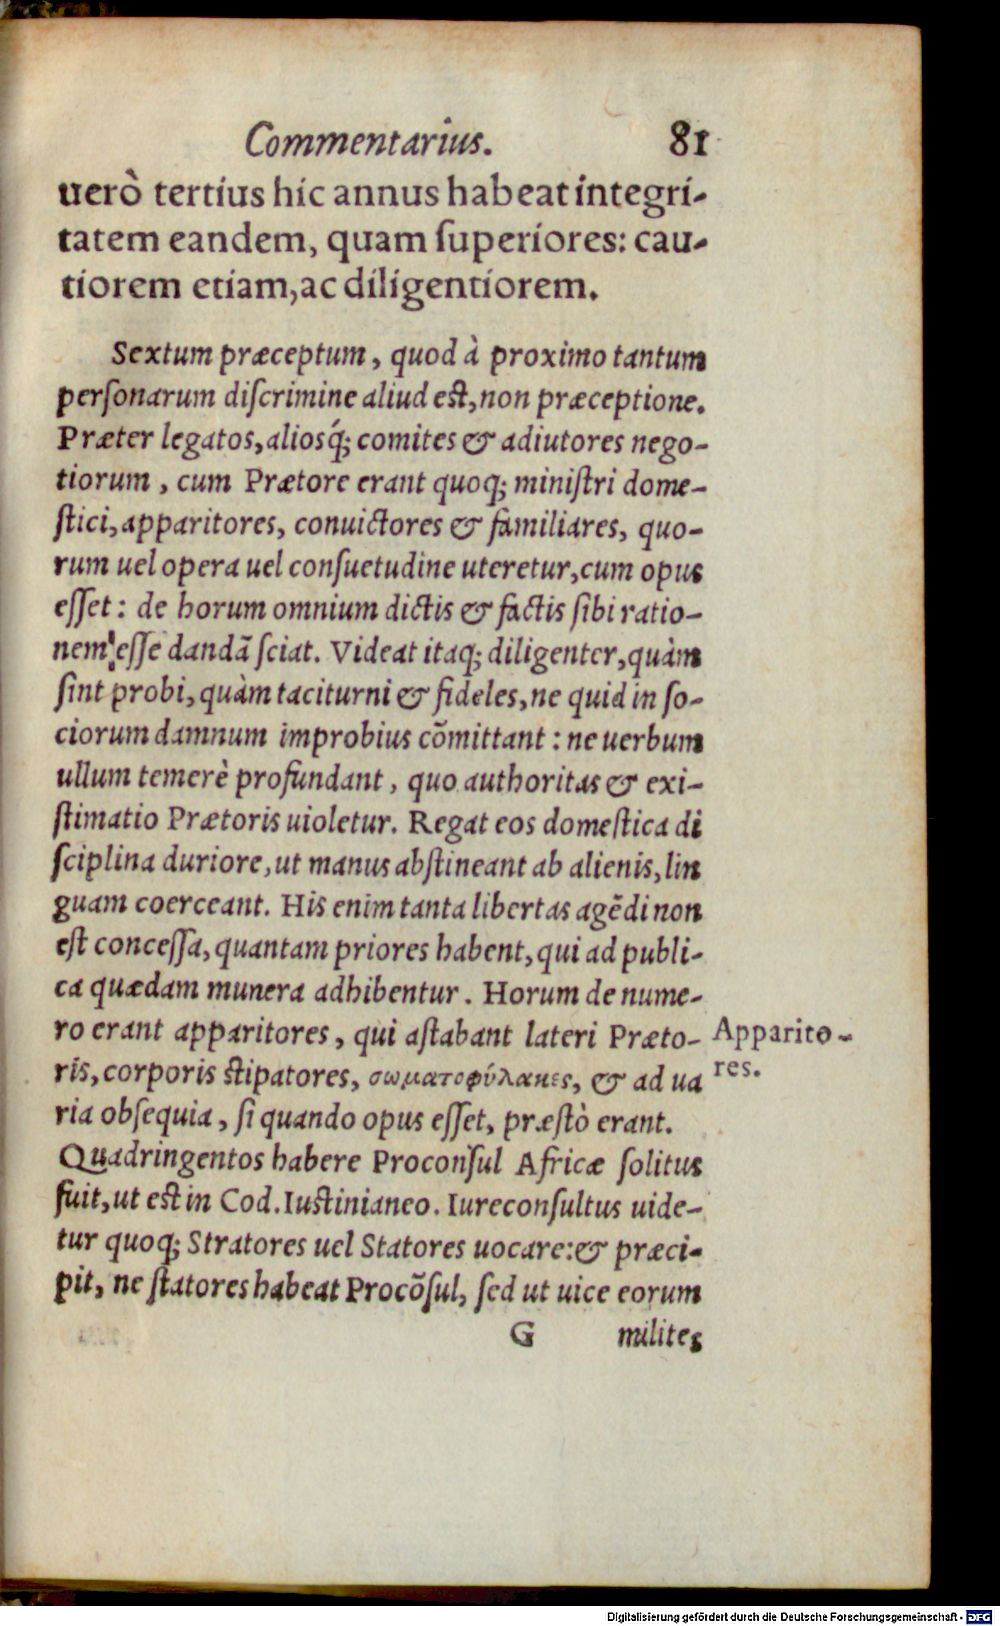 Commentarius. 81
uerò tertius hic annus habeat integri-
tatem eandem, quam ſuperiores: cau-
tiorem etiam, ac diligentiorem.
Sextum præceptum, quod à proximo tantum
perſonarum diſcrimine aliud eſt, non præceptione.
Præter legatos, aliosq́; comites & adiutores nego-
tiorum, cum Prætore erant quoq; miniſtri dome-
ſtici, apparitores, conuictores & familiares, quo-
rum uel opera uel conſuetudine uteretur, cum opus
eſſet: de horum omnium dictis & factis ſibi ratio-
nem eſſe dandã ſciat. Videat itaq; diligenter, quàm
ſint probi, quàm taciturni & fideles, ne quid in ſo-
ciorum damnum improbius cõmittant: ne uerbum
ullum temerè profundant, quo authoritas & exi-
ſtimatio Prætoris uioletur. Regat eos domeſtica di
ſciplina duriore, ut manus abſtineant ab alienis, lin
guam coerceant. His enim tanta libertas agẽdi non
eſt conceſſa, quantam priores habent, qui ad publi-
ca quædam munera adhibentur. Horum de nume-
ro erant apparitores, qui aſtabant lateri Præto-
ris, corporis ſtipatores, σωματοφύλακες, & ad ua
ria obſequia, ſi quando opus eſſet, præſtò erant.
Apparito-
res.
Quadringentos habere Proconſul Africæ ſolitus
fuit, ut eſt in Cod. Iuſtinianeo. Iureconſultus uide-
tur quoq; Stratores uel Statores uocare: & præci-
pit, ne ſtatores habeat Procõſul, ſed ut uice eorum
G milites
Digitalisierung gefördert durch die Deutsche Forschungsgemeinschaft - DFG